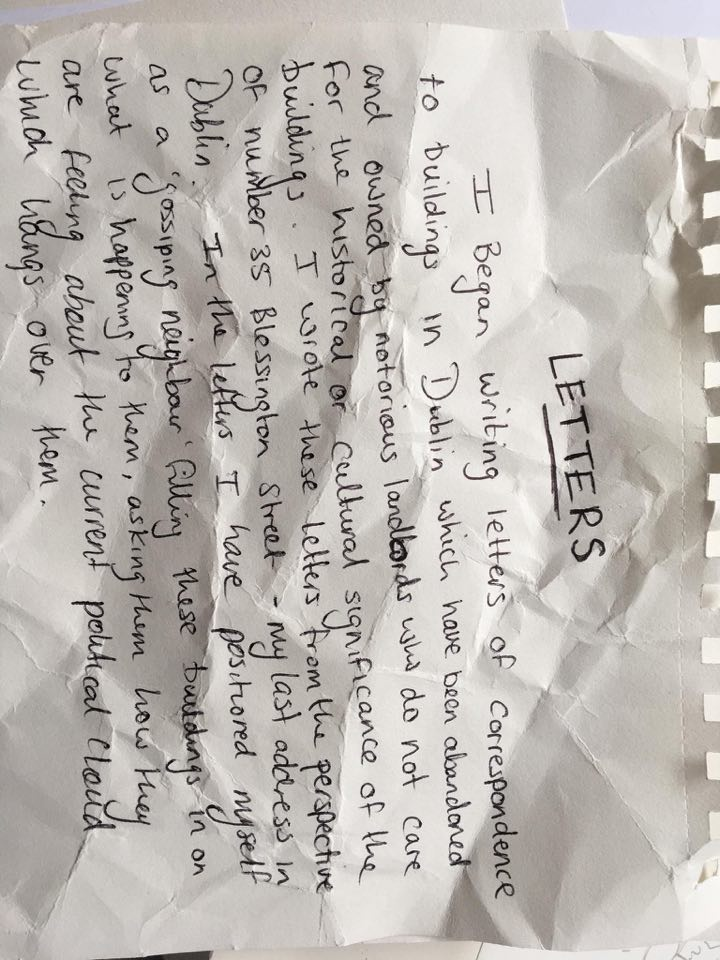 LETTERS
I Began writing letters of correspondence
to buildings in Dublin which have been abandoned
and owned by notorious landlords who do not care
for the historical or cultural significance of the
buildings. I wrote these letters from the perspective
of number 35 Blessington Street - my last address in
Dublin. In the letters I have positioned myself
as a 'gossiping neighbour' filling these buildings in on
what is happening to them, asking them how they
are feeling about the current political cloud
which hangs over them.